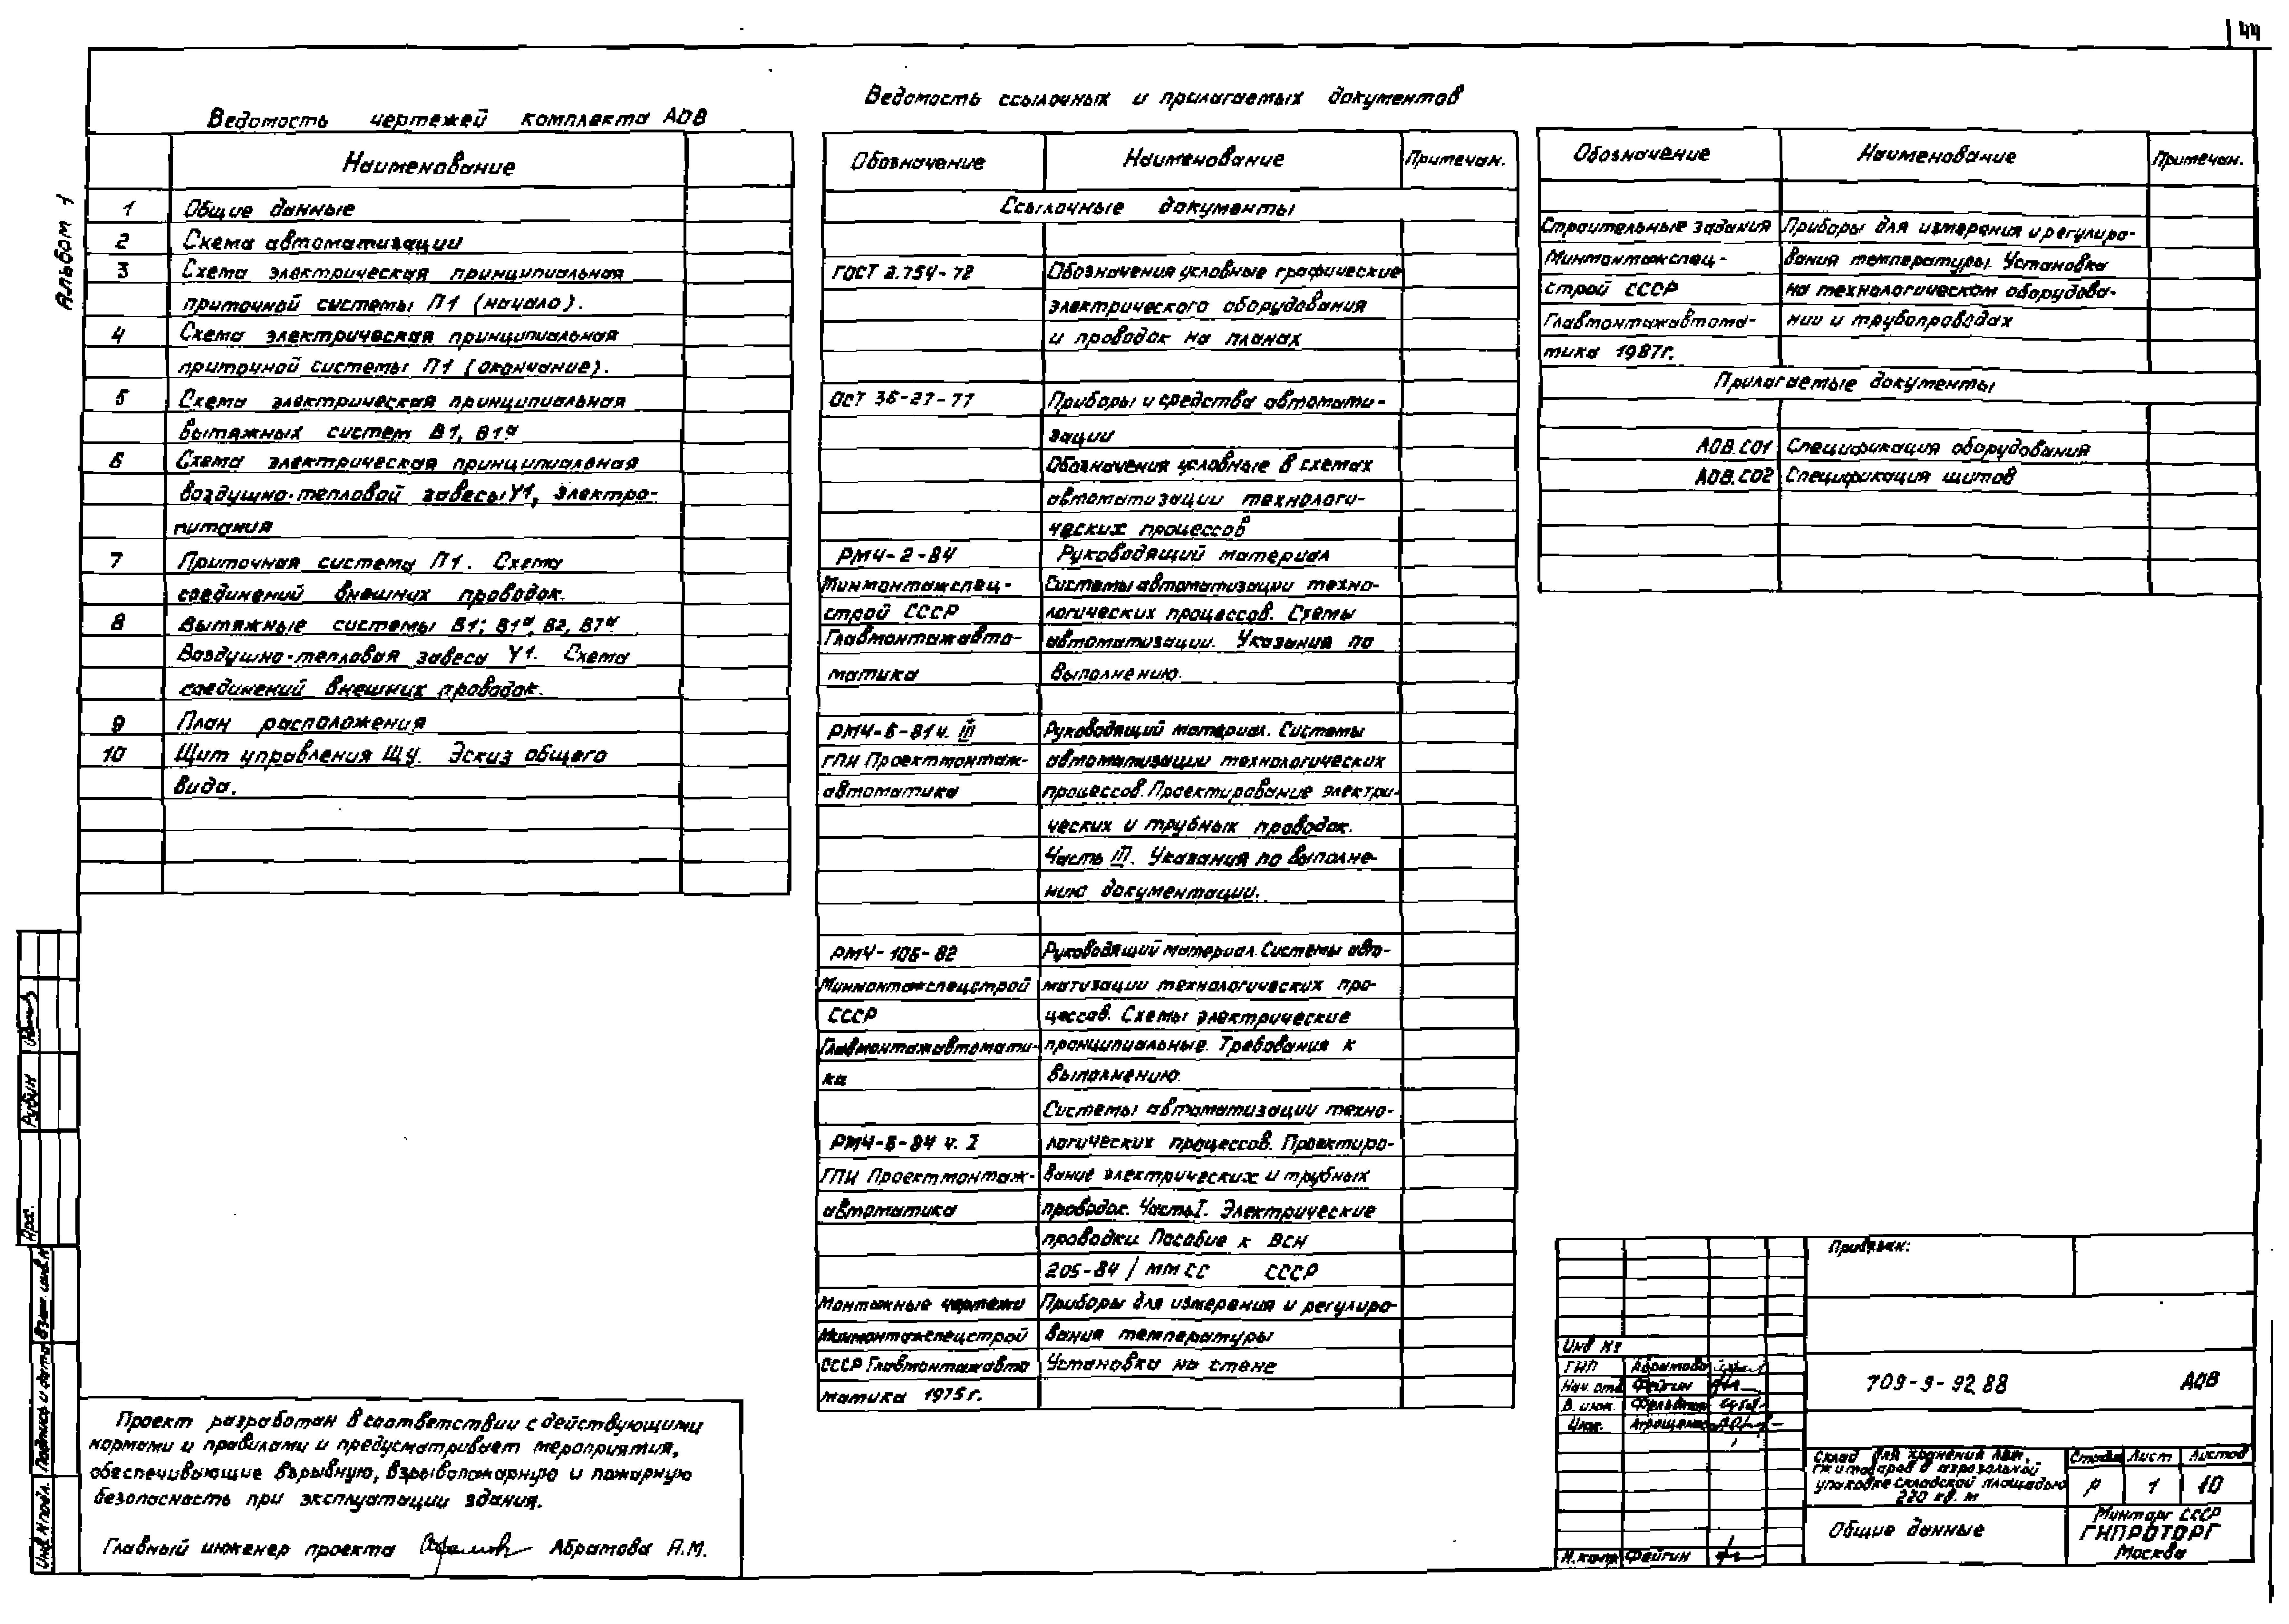 44
Альбом 1
Ведомость чертежей комплекта АОВ
Наименование
1 Общие данные
2 Схема автоматизации
3 Схема электрическая принципиальная
приточной системы П1 (начало).
4 Схема электрическая принципиальная
приточной системы П1 (окончание).
5 Схема электрическая принципиальная
вытяжных систем В1, В1а
6 Схема электрическая принципиальная
воздушно-тепловой завесы У1, электро-
питания
7 Приточная система П1. Схема
соединений внешних проводок.
8 Вытяжные системы В1; В1а, В2, В7а
Воздушно-тепловая завеса У1. Схема
соединений внешних проводок.
9 План расположения
10 Щит управления ЩУ. Эскиз общего
вида.
Ведомость ссылочных и прилагаемых документов
Обозначение Наименование Примечан.
Ссылочные документы
ГОСТ 2.754-72 Обозначения условные графические
электрического оборудования
и проводок на планах
ОСТ 36-27-77 Приборы и средства автомати-
зации
Обозначения условные в схемах
автоматизации технологи-
ческих процессов
РМ4-2-84 Руководящий материал
Минмонтажспец- Системы автоматизации техно-
строй СССР логических процессов. Схемы
Главмонтажавто- автоматизации. Указания по
матика выполнению.
РМ4-6-81 ч. III Руководящий материал. Системы
ГПИ Проектмонтаж- автоматизации технологических
автоматика процессов. Проектирование электри-
ческих и трубных проводок.
Часть III. Указания по выполне-
нию документации.
РМ4-106-82 Руководящий материал. Системы авто-
Минмонтажспецстрой матизации технологических про-
СССР цессов. Схемы электрические
Главмонтажавтомати- принципиальные. Требования к
ка выполнению.
Системы автоматизации техно-
РМ4-6-84 ч. I логических процессов. Проектиро-
ГПИ Проектмонтаж- вание электрических и трубных
автоматика проводок. Часть I. Электрические
проводки. Пособие к ВСН
205-84 / ММСС СССР
Монтажные чертежи Приборы для измерения и регулиро-
Минмонтажспецстрой вания температуры
СССР Главмонтажавто Установка на стене
матика 1975г.
Обозначение Наименование Примечан.
Строительные задания Приборы для измерения и регулиро-
Минмонтажспец- вания температуры. Установка
строй СССР на технологическом оборудова-
Главмонтажавтома- нии и трубопроводах
тика 1987г.
Прилагаемые документы
АОВ.СО1 Спецификация оборудования
АОВ.СО2 Спецификация щитов
Проект разработан в соответствии с действующими
нормами и правилами и предусматривает мероприятия,
обеспечивающие взрывную, взрывопожарную и пожарную
безопасность при эксплуатации здания.
Главный инженер проекта Абрамова А.М.
Рубин
Арх.
Инв.№подл. Подпись и дата Взам.инв.№
Привязан:
Инв №
ГИП Абрамова
Нач. отд. Фейгин
В. инж. Фельдман
Инж.
Н.контр Фейгин
709-9-92.88 АОВ
Склад для хранения ЛВЖ,
ГЖ и товаров в аэрозольной
упаковке складской площадью
220 кв. м
Стадия Лист Листов
Р 1 10
Общие данные
Минторг СССР
ГИПРОТОРГ
Москва